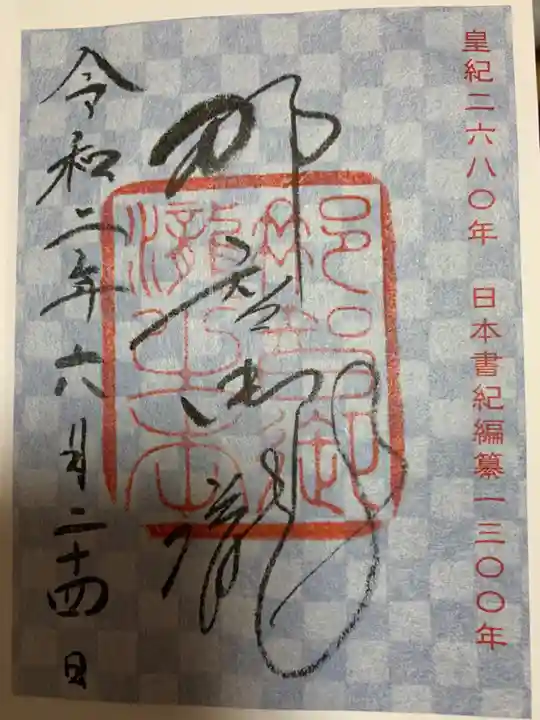 皇紀二六八〇年　日本書紀編纂一三〇〇年
那智御瀧
令和二年六月二十四日